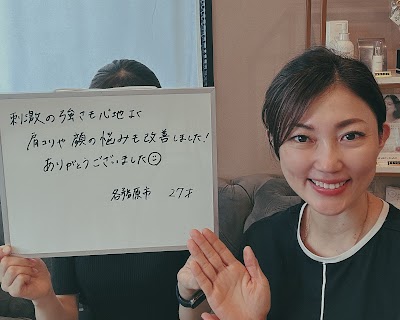 刺激の強さも心地よく
肩コリや顔の悩みも改善しました！
ありがとうございました☺
27才